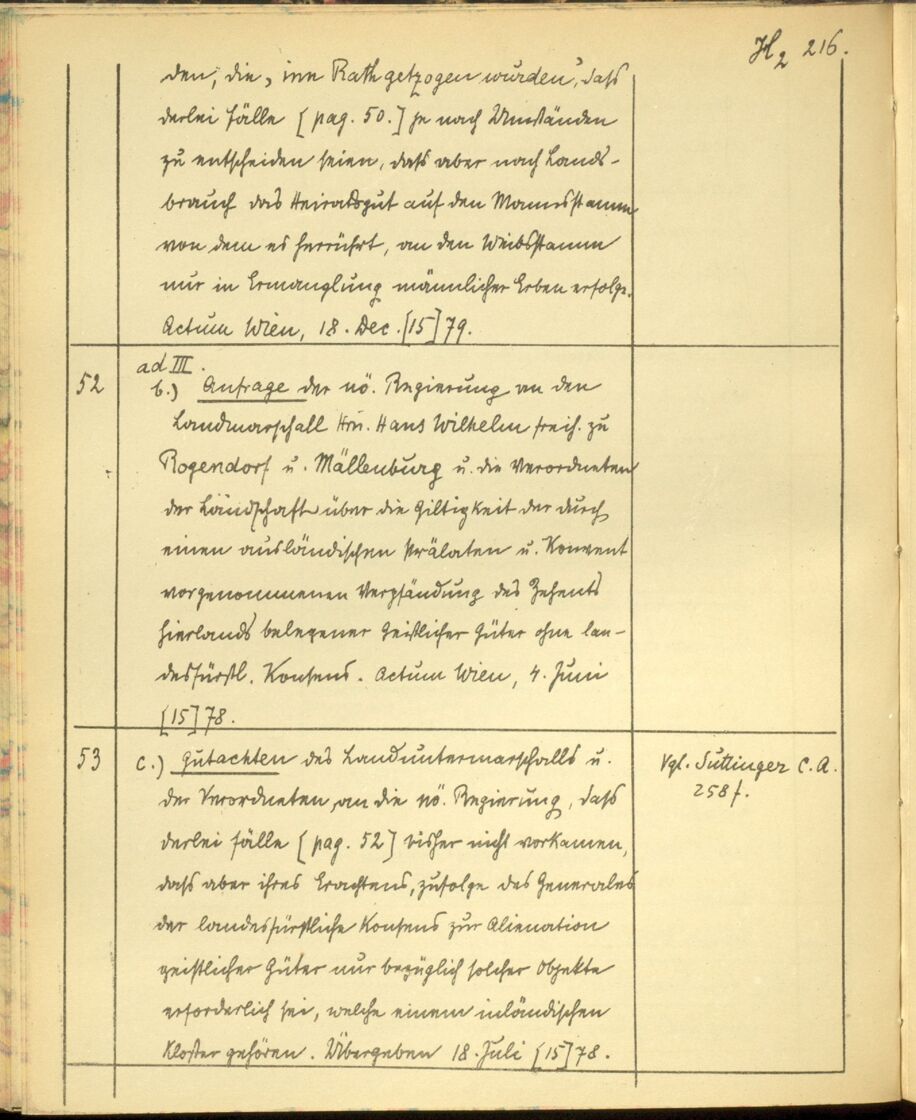 H2 216.
den, die „inn Rath getzogen wurden“, daß
derlei Fälle [pag. 50.] je nach Umständen
zu entscheiden seien, daß aber nach Lands-
brauch das Heiratsgut auf den Mannsstamm
von dem es herrührt, an den Weibsstamm
nur in Ermanglung männlicher Erben erfolge.
Actum Wien, 18. Dec. [15]79.
ad III.
52 b.) Anfrage der nö. Regierung an den
Landmarschall Hrn. Hans Wilhelm Freih. zu
Rogendorf u. Mällenburg u. die Verordneten
der Landschaft über die Giltigkeit der durch
einen ausländischen Prälaten u. Konvent
vorgenommenen Verpfändung des Zehents
hierlands belegener geistlicher Güter ohne lan-
desfürstl. Konsens. Actum Wien, 4. Juni
[15]78.
53 c.) Gutachten des Landuntermarschalls u.
der Verordneten an die nö. Regierung, daß
derlei Fälle [pag. 52] bisher nicht vorkamen,
daß aber ihres Erachtens, zufolge des Generales
der landesfürstliche Konsens zur Alienation
geistlicher Güter nur bezüglich solcher Objekte
erforderlich sei, welche einem inländischen
Kloster gehören. Übergeben 18. Juli [15]78.
Vgl. Suttinger C. A.
258 f.